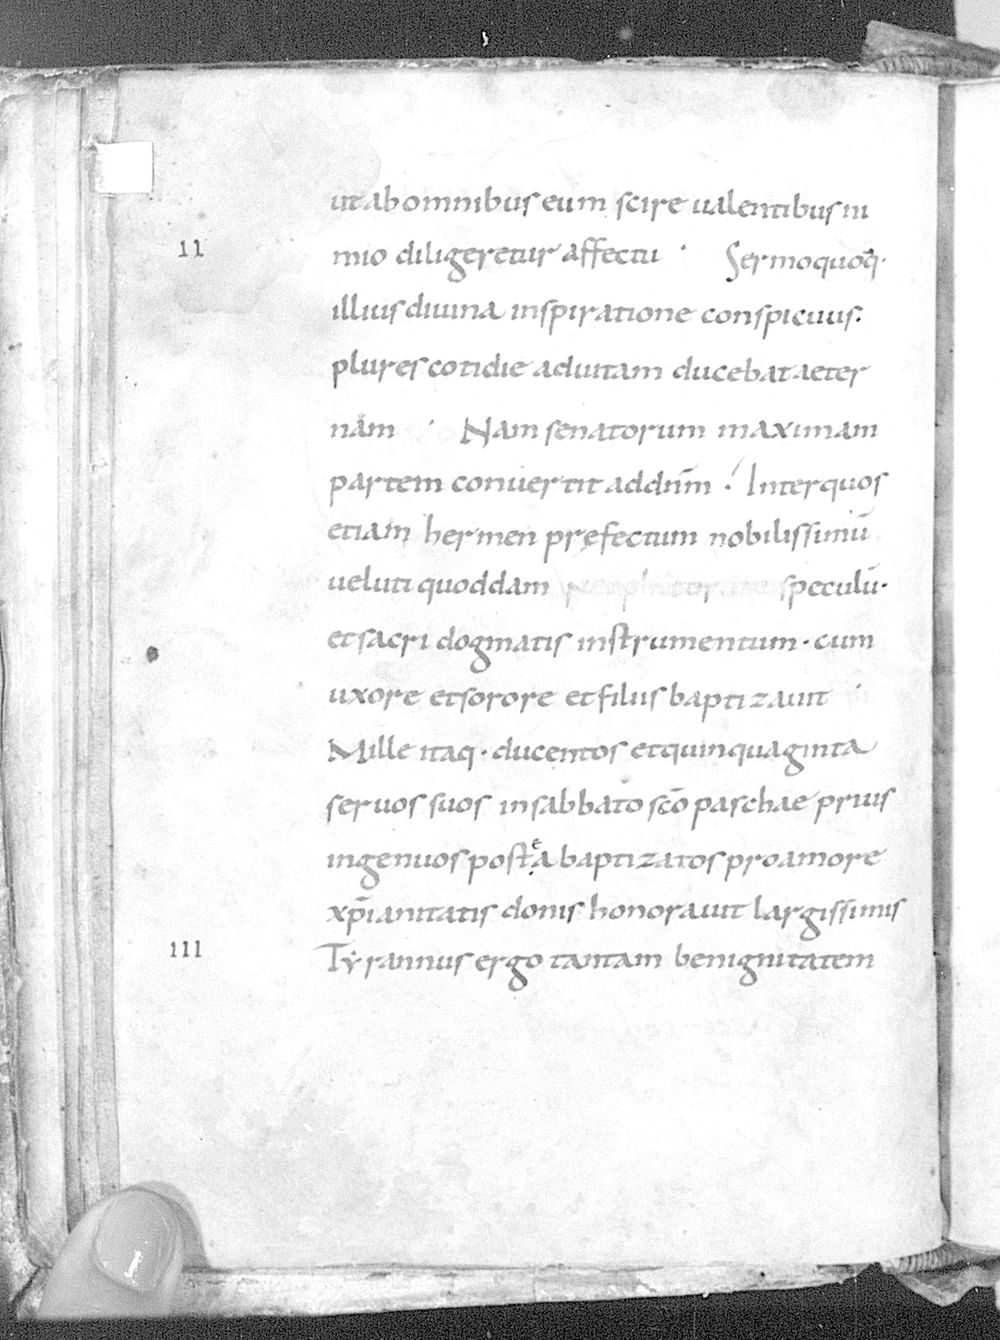 ut ab omnibus eum scire ualentibus ni
11
mio diligeretur affectu · Sermo quoq·
illius diuina inspiratione conspicuus.
plures cotidie ad uitam ducebat aeter
nam · Nam senatorum maximam
partem conuertit ad dn̄m · Inter quos
etiam hermen pręfectum nobilissimū
ueluti quoddam speculū·
et sacri dogmatis instrumentum · cum
uxore et sorore et filiis baptizauit
Mille itaq· ducentos et quinquaginta
seruos suos in sabbato sc̄o paschae prius
ingenuos postea baptizatos pro amore
xp̄ianitatis donis honorauit largissimis
111
Tẏrannus ergo tantam benignitatem